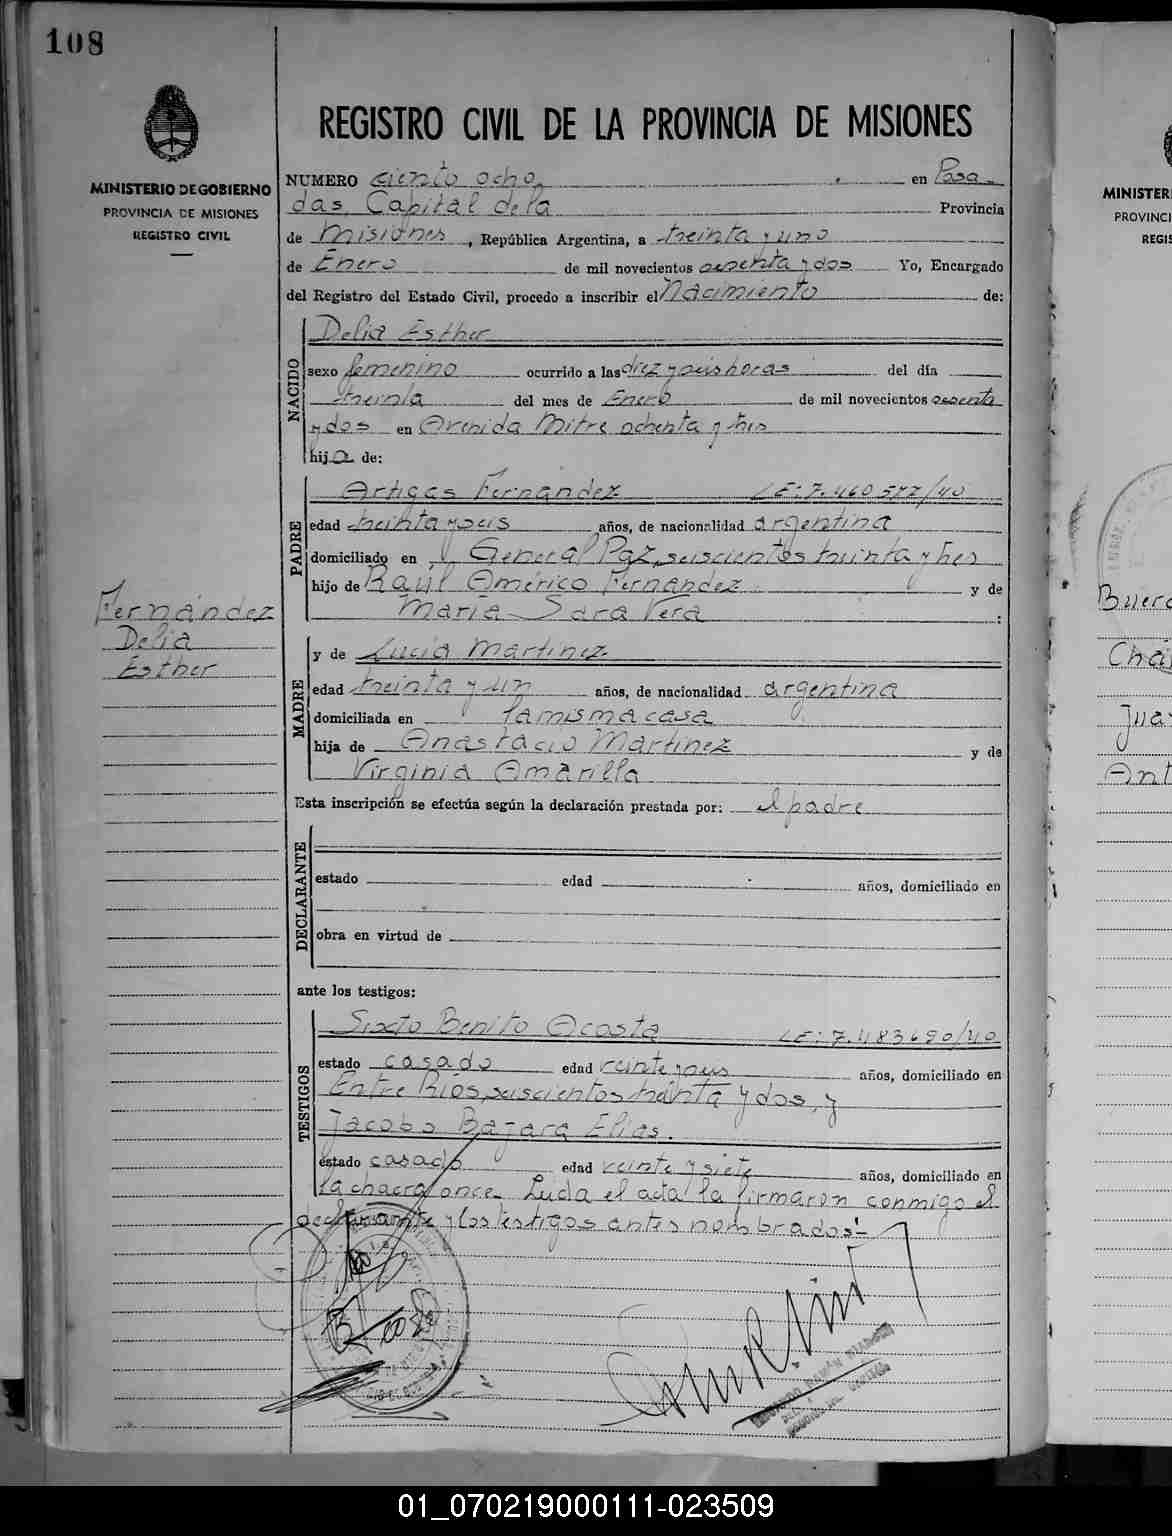 108
MINISTERIO DE GOBIERNO
PROVINCIA DE MISIONES
REGISTRO CIVIL
Fernández
Delia
Esther
REGISTRO CIVIL DE LA PROVINCIA DE MISIONES
NUMERO ciento ocho en Posa-
das, Capital de la Provincia
de Misiones, República Argentina, a treinta y uno
de Enero de mil novecientos sesenta y dos Yo, Encargado
del Registro del Estado Civil, procedo a inscribir el Nacimiento de:
NACIDO
Delia Esther
sexo femenino ocurrido a las diez y seis horas del día
treinta del mes de Enero de mil novecientos sesenta
y dos en Avenida Mitre ochenta y tres
hija de:
PADRE
Artigas Fernández LE: 7.460.577/40
edad treinta y seis años, de nacionalidad argentina
domiciliado en General Paz, seiscientos treinta y tres
hijo de Raúl Américo Fernández y de
María Sara Vera :
MADRE
y de Lucía Martínez
edad treinta y un años, de nacionalidad argentina
domiciliada en la misma casa
hija de Anastacio Martínez y de
Virginia Amarilla
Esta inscripción se efectúa según la declaración prestada por: el padre
DECLARANTE
estado edad años, domiciliado en
obra en virtud de
ante los testigos:
TESTIGOS
Sixto Benito Acosta LE: 7.483.690/40
estado casado edad veinte y seis años, domiciliado en
Entre Ríos, seiscientos treinta y dos, y
Jacobo Bajara Elias.
estado casado edad veinte y siete años, domiciliado en
la chacra once. Leída el acta la firmaron conmigo el
declarante y los testigos antes nombrados.-
MINISTER
PROVINCI
REGIS
Jua
Ant
01_070219000111-023509